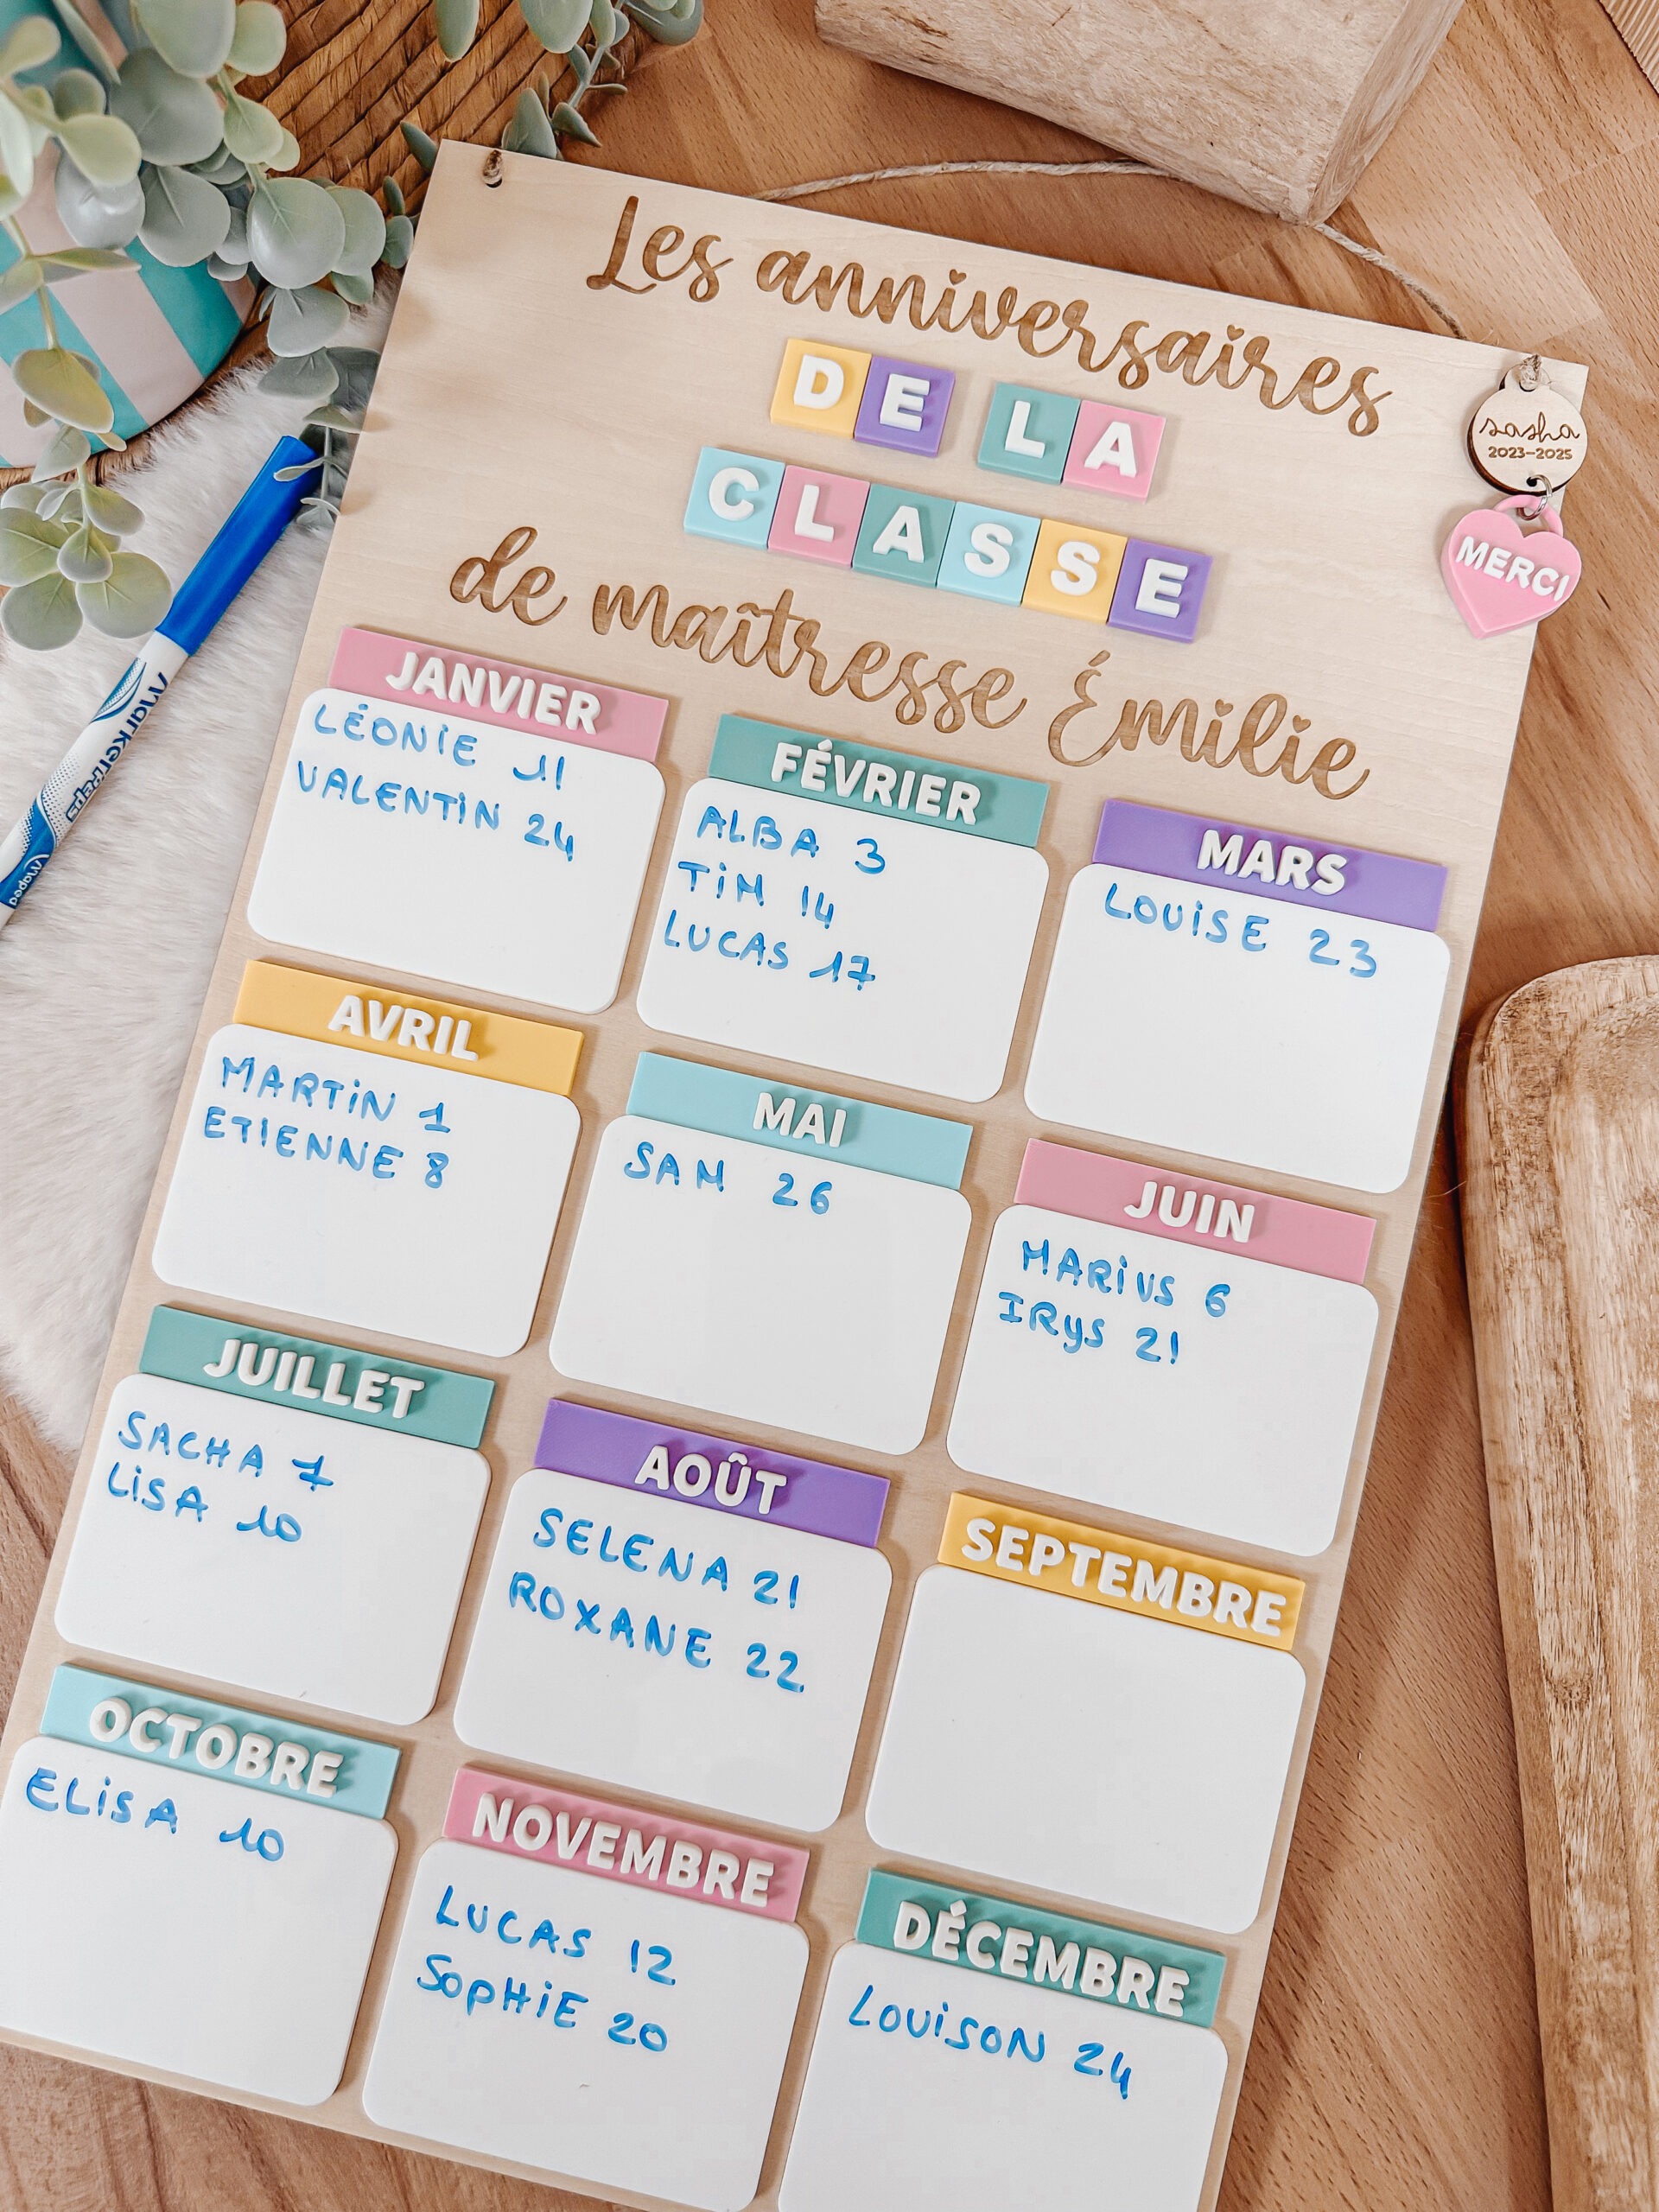 Les anniversaires
DE LA
CLASSE
de maîtresse Émilie
sasha
2023-2025
MERCI
JANVIER
LÉONIE 11
VALENTIN 24
FÉVRIER
ALBA 3
TIM 14
LUCAS 17
MARS
LOUISE 23
AVRIL
MARTIN 1
ETIENNE 8
MAI
SAM 26
JUIN
MARIUS 6
IRYS 21
JUILLET
SACHA 7
LISA 10
AOÛT
SELENA 21
ROXANE 22
SEPTEMBRE
OCTOBRE
ELISA 10
NOVEMBRE
LUCAS 12
SOPHIE 20
DÉCEMBRE
LOUISON 24
Marker'Peps
Maped